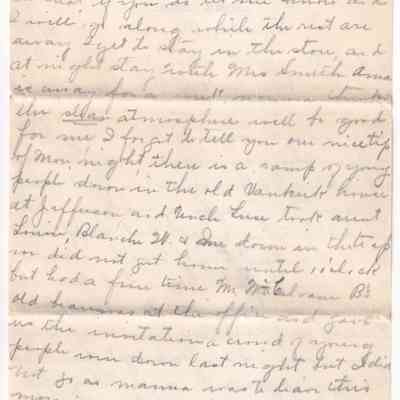 if you do let me know and
I will go along while the rest are
away I get to stay in the store and
at night stay with Mrs Smith Ama
is away for
the atmosphere will be good
for me I forgot to tell you our nice trip
of Mon night there is a camp of young
people down in the old house
at Jefferson and Uncle took aunt
Louise Blanche W. & me down in the
we did not get home until 11 o'clock
but had a fine time Mr B's
old at the office and gave
us the invitation a crowd of young
people were down last night but I did
not go as mamma was to leave this